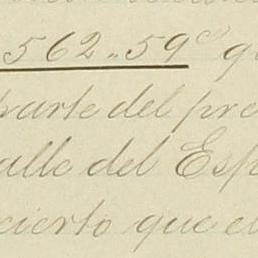 562.,59 cs q
parte del pre
alle del Esp
cierto que el